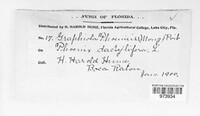 FUNGI OF FLORIDA.
Distributed by H. HAROLD HUME, Florida Agricultural College, Lake City, Fla.
No. 17. Graphiola Phoenicis (Moug) Poit
On Phoenix dactylifera L.
H. Harold Hume
Boca Raton,
Jan. 1900.
973934